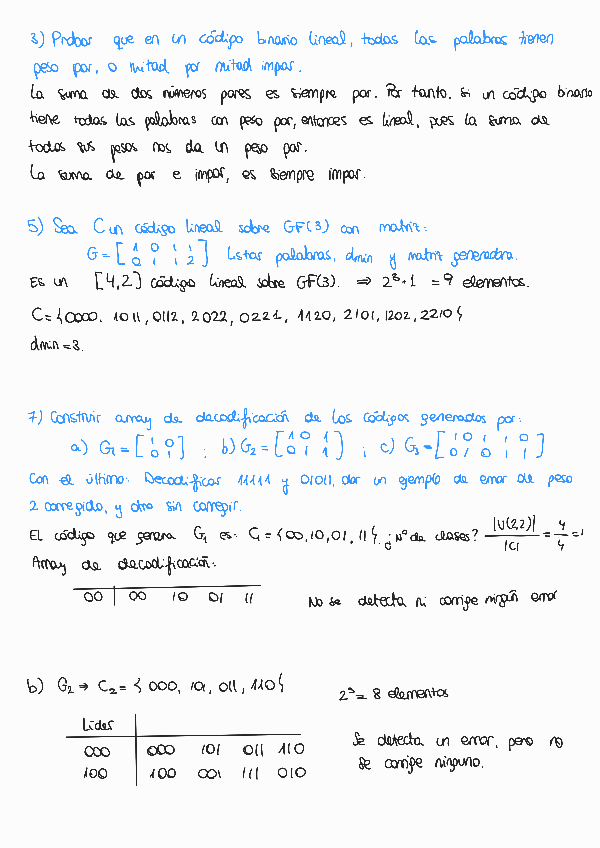 3) Probar que en un código binario lineal, todas las palabras tienen
peso par, o mitad par mitad impar.
La suma de dos números pares es siempre par. Por tanto, si un código binario
tiene todas las palabras con peso par, entonces es lineal, pues la suma de
todos sus pesos nos da un peso par.
La suma de par e impar, es siempre impar.
5) Sea C un código lineal sobre GF(3) con matriz:
G = [1 0 1 1
0 1 1 2] Listas palabras, dmin y matriz generadora.
Es un [4,2] código lineal sobre GF(3). ⇒ 2³+1 = 9 elementos.
C = {0000, 1011, 0112, 2022, 0221, 1120, 2101, 1202, 2210}
dmin = 3.
7) Construir array de decodificación de los códigos generados por:
a) G₁ = [1 0
0 1] ; b) G₂ = [1 0 1
0 1 1] ; c) G₃ = [1 0 1 1 0
0 1 0 1 1]
Con el último: Decodificar 11111 y 01011, dar un ejemplo de error de peso
2 corregido, y otro sin corregir.
El código que genera G₁ es: C₁ = {00, 10, 01, 11}. ¿Nº de clases? |V(2,2)| / |C| = 4/4 = 1
Array de decodificación:
00 | 00 10 01 11
No se detecta ni corrige ningún error
b) G₂ → C₂ = { 000, 101, 011, 110}
2³ = 8 elementos
Líder
000 | 000 101 011 110
100 | 100 001 111 010
Se detecta un error, pero no
se corrige ninguno.